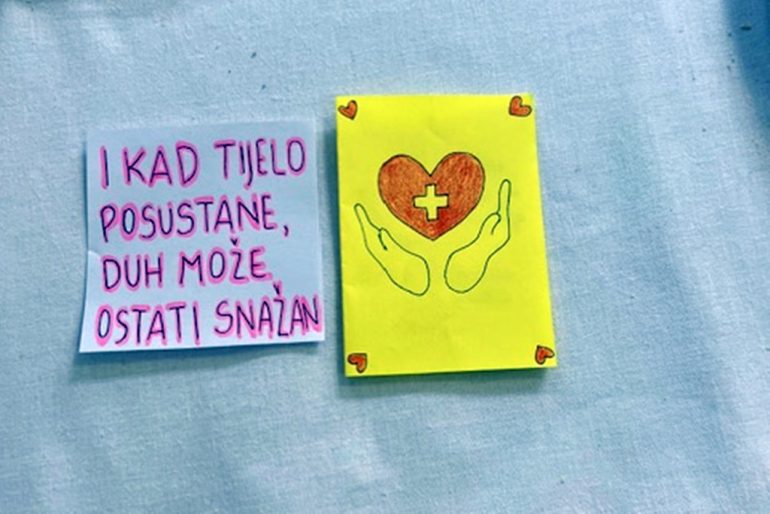 I KAD TIJELO
POSUSTANE,
DUH MOŽE
OSTATI SNAŽAN